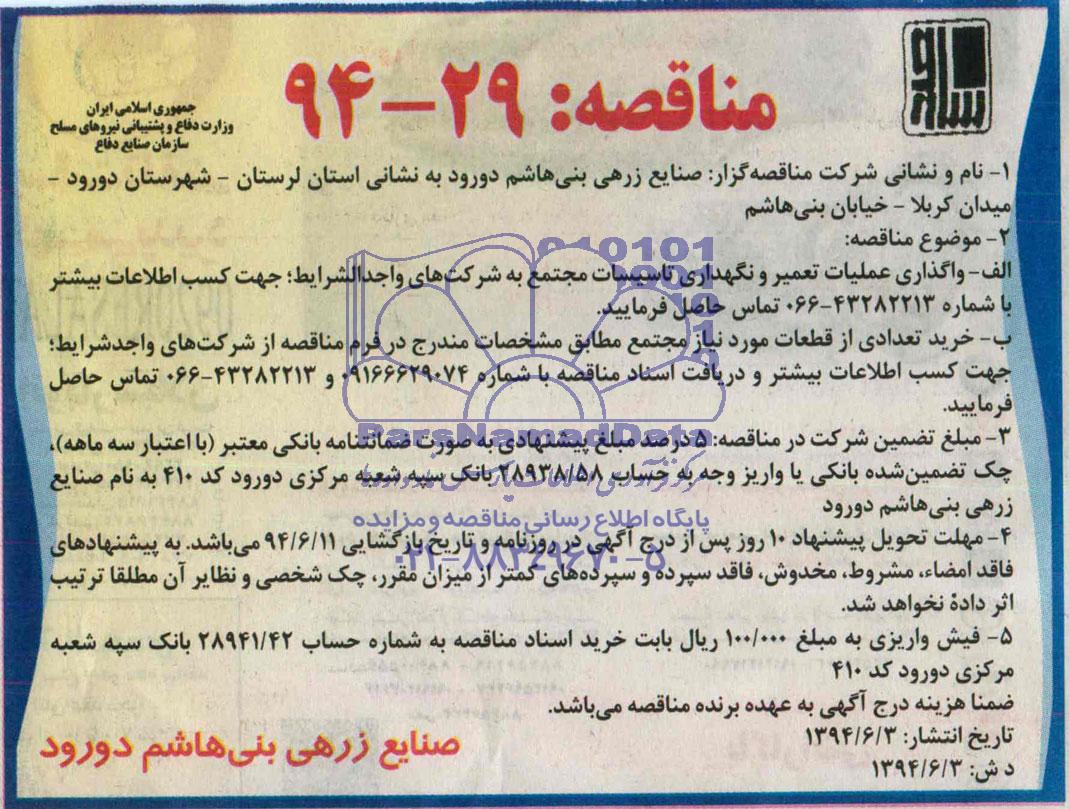 مناقصه: ۲۹-۹۴
جمهوری اسلامی ایران
وزارت دفاع و پشتیبانی نیروهای مسلح
سازمان صنایع دفاع
۱- نام و نشانی شرکت مناقصه‌گزار: صنایع زرهی بنی‌هاشم دورود به نشانی استان لرستان - شهرستان دورود -
میدان کربلا - خیابان بنی‌هاشم
۲- موضوع مناقصه:
الف- واگذاری عملیات تعمیر و نگهداری تاسیسات مجتمع به شرکت‌های واجدالشرایط؛ جهت کسب اطلاعات بیشتر
با شماره ۴۳۲۸۲۲۱۳-۰۶۶ تماس حاصل فرمایید.
ب- خرید تعدادی از قطعات مورد نیاز مجتمع مطابق مشخصات مندرج در فرم مناقصه از شرکت‌های واجدشرایط؛
جهت کسب اطلاعات بیشتر و دریافت اسناد مناقصه با شماره ۰۹۱۶۶۶۲۹۰۷۴ و ۴۳۲۸۲۲۱۳-۰۶۶ تماس حاصل
فرمایید.
۳- مبلغ تضمین شرکت در مناقصه: ۵ درصد مبلغ پیشنهادی به صورت ضمانتنامه بانکی معتبر (با اعتبار سه ماهه)،
چک تضمین‌شده بانکی یا واریز وجه به حساب ۲۸۹۳۸/۵۸ بانک سپه شعبه مرکزی دورود کد ۴۱۰ به نام صنایع
زرهی بنی‌هاشم دورود
۴- مهلت تحویل پیشنهاد ۱۰ روز پس از درج آگهی در روزنامه و تاریخ بازگشایی ۹۴/۶/۱۱ می‌باشد. به پیشنهادهای
فاقد امضاء، مشروط، مخدوش، فاقد سپرده و سپرده‌های کمتر از میزان مقرر، چک شخصی و نظایر آن مطلقا ترتیب
اثر داده نخواهد شد.
۵- فیش واریزی به مبلغ ۱۰۰/۰۰۰ ریال بابت خرید اسناد مناقصه به شماره حساب ۲۸۹۴۱/۴۲ بانک سپه شعبه
مرکزی دورود کد ۴۱۰
ضمنا هزینه درج آگهی به عهده برنده مناقصه می‌باشد.
تاریخ انتشار: ۱۳۹۴/۶/۳
د ش: ۱۳۹۴/۶/۳
صنایع زرهی بنی‌هاشم دورود
ParsNamadData
پایگاه اطلاع رسانی مناقصه و مزایده
۰۲۱-۸۸۳۴۹۶۷۰-۵